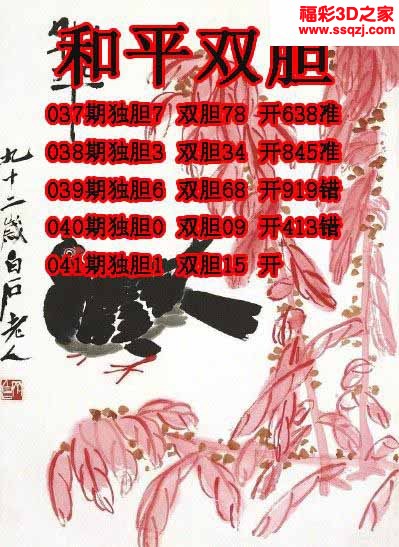 福彩3D之家
www.ssqzj.com
和平双胆
037期独胆7 双胆78 开638准
038期独胆3 双胆34 开845准
039期独胆6 双胆68 开919错
040期独胆0 双胆09 开413错
041期独胆1 双胆15 开
九十二岁白石老人